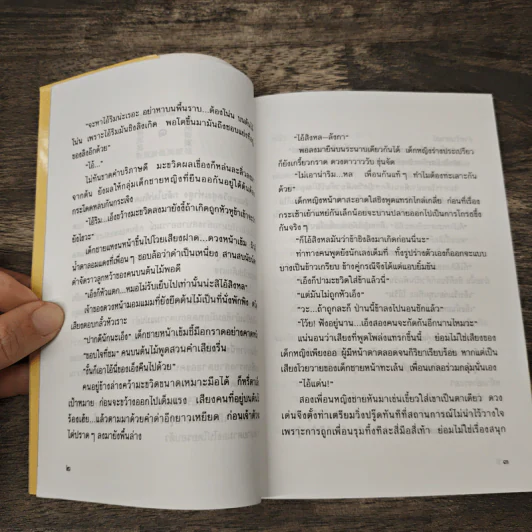 "จะหาไอ้ริมน่ะเรอะ อย่าหาบนพื้นราบ...ต้องโน่น บนต้นไม้
โน่น เพราะไอ้ริมมันลิงลังเกิด พอโตขึ้นมามันถึงชอบ
ของลิงอีกด้วย"
"ไอ้..."
ไม่ทันขาดคำบริภาษดี มะขวิดผลเขื่องก็หล่นละลิ่วลงมา
จากต้น ยังผลให้กลุ่มเด็กชายหญิงที่ยืนออกันอยู่ใต้ต้น
กระโดดหลบกันกระเจิง
"ไอ้ริม...เอ็งขว้างมะขวิดลงมายังงี้ถ้าเกิดถูกหัวกูเข้า
ยังไงวะ"
เด็กชายแหงนหน้าขึ้นไปโวยเสียงฝาด...ดวงหน้าเข้ม
น้ำตาลอมแดงที่เพื่อน ๆ ชอบล้อว่าดำเป็นเหนี่ยง สานสบ
ดำจัดราวลูกหว้าของคนบนต้นไม้พอดี
"เอ็งก็หัวแตก...หมอไม่รับเย็บไปเท่านั้นน่ะสิไอ้สิงหล"
เจ้าของดวงหน้ามอมแมมที่ยังยึดต้นไม้เป็นที่นั่งพักพิง
เสียงตอบกลั้วหัวเราะ
"ปากดีนักนะเอ็ง" เด็กชายหน้าเข้มชี้มือกราดอย่าง
"ชอบใจที่ชม" คนบนต้นไม้พูดสวนคำเสียงรื่น
"งั้นก็เอาไอ้นี่ของเอ็งคืนไป"
คนอยู่ข้างล่างคว้ามะขวิดขนาดเหมาะมือได้ ก็หรี่ตา
เป้าหมาย ก่อนจะขว้างออกไปเต็มแรง เสียงคนที่อยู่บนต้น
ร้องเฮ้ย...แล้วตามมาด้วยคำด่าอีกยาวเหยียด ก่อนเจ้าตัว
ไต่ปราด ๆ ลงมายังพื้นล่าง
๒
"ไอ้สิงหล-ลังกา"
พอลงมายืนบนระนาบเดียวกันได้ เด็กหญิงร่างประเปรียว
ก็ยังเกรี้ยวกราด ดวงตาวาววับ ขุ่นจัด
"ไม่เอาน่าริม...หล เพื่อนกันแท้ ๆ ทำไมต้องทะเลาะกัน
ด้วย"
เด็กหญิงหน้าตาสะอาดใสรีบพูดแทรกไกล่เกลี่ย ก่อนที่เรื่อง
กระเซ้าเย้าแหย่กันเล็กน้อยจะบานปลายออกไปเป็นการโกรธขึ้ง
กันจริง ๆ
"ก็ไอ้สิงหลมันว่าข้ายังลิงมาเกิดก่อนนี่นะ"
ท่าทางคนพูดยังนักเลงเต็มที่ ทั้งรูปร่างตัวเองก็ออกจะแบบ
บางเป็นข้าวเกรียบ ข้างคู่กรณีจึงได้แค่แอบยิ้มขัน
"เอ็งก็ปามะขวิดใส่ข้าแล้วนี่"
"แต่มันไม่ถูกหัวเอ็ง"
"วะ...ถ้าถูกละก็ ป่านนี้ข้าลงไปนอนชักแล้ว"
"โว้ย! ฟังอยู่นาน...เอ็งสองคนจะกัดกันอีกนานไหมวะ"
แน่นอนว่าเสียงที่พูดโพล่งแทรกขึ้นนี้ ย่อมไม่ใช่เสียงของ
เด็กหญิงเพียงออ ผู้มีหน้าตาตลอดจนกิริยาเรียบร้อย หากแต่เป็น
เสียงโวยวายของเด็กชายหน้าทะเล้น เพื่อนเกลอร่วมกลุ่มนั่นเอง
"ไอ้แต้น!"
สองเพื่อนหญิงชายหันมาเข่นเขี้ยวใส่เขาเป็นตาเดียว ดวง
เด่นจึงตั้งท่าเตรียมวิ่งปรู๊ดทันทีที่สถานการณ์ไม่น่าไว้วางใจ
เพราะการถูกเพื่อนรุมทึ้งทีละสี่มือสี่เท้า ย่อมไม่ใช่เรื่องสนุก
๓